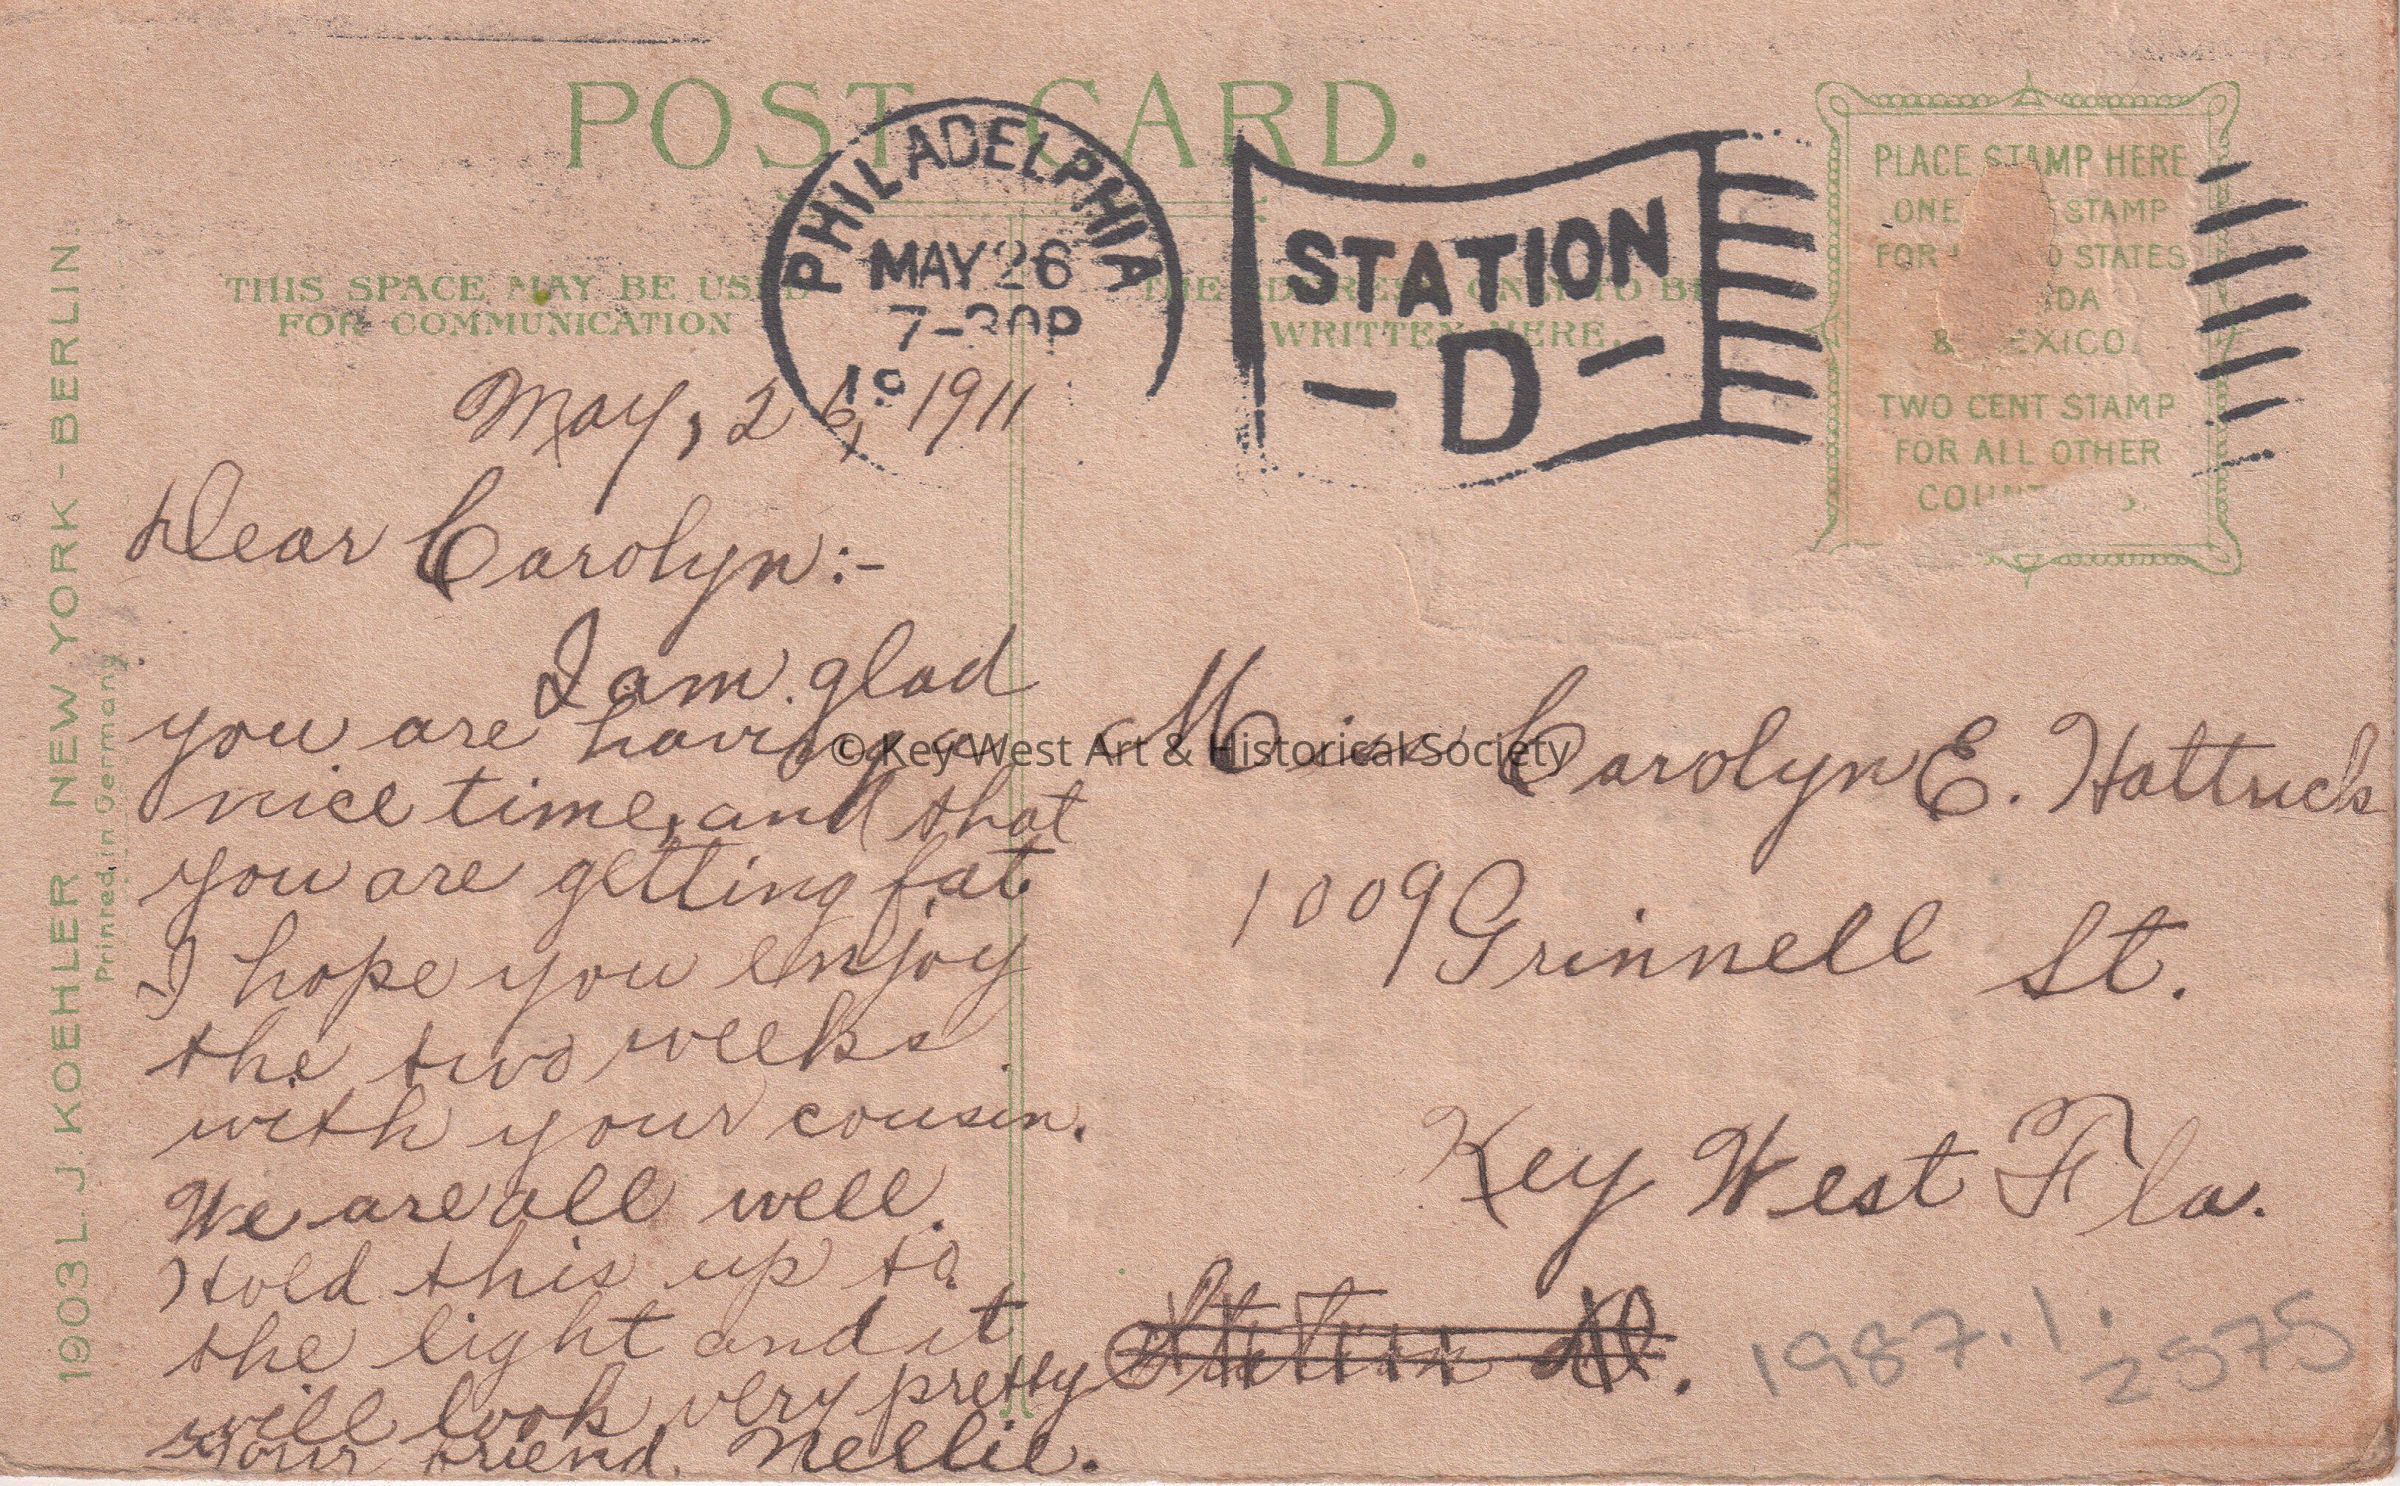 POST CARD.
PHILADELPHIA
MAY 26
7-30P
19
STATION
- D -
PLACE STAMP HERE
ONE STAMP
FOR STATES
& MEXICO
TWO CENT STAMP
FOR ALL OTHER
COUNTRIES.
THIS SPACE MAY BE USED
FOR COMMUNICATION
THE ADDRESS ONLY TO BE
WRITTEN HERE.
1903 L. J. KOEHLER NEW YORK - BERLIN.
Printed in Germany
May, 26, 1911
Dear Carolyn:-
I am glad
you are having a
nice time, and that
you are getting fat
I hope you enjoy
the two weeks
with your cousin.
We are all well.
Hold this up to
the light and it
will look very pretty
Your friend. Nellie.
Miss Carolyn E. Hattrick
1009 Grinnell St.
Key West Fla.
Station D.
1987.1.
2575
© Key West Art & Historical Society